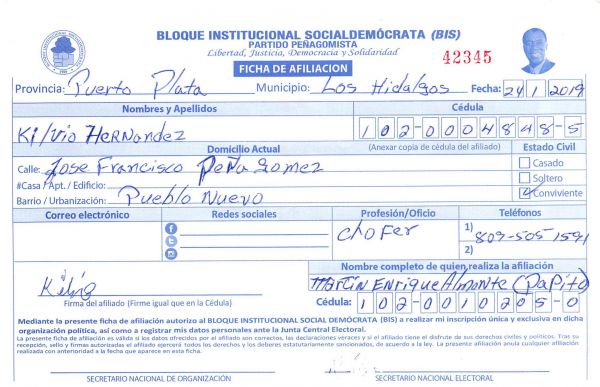 BLOQUE INSTITUCIONAL SOCIALDEMÓCRATA (BIS)
PARTIDO PEÑAGOMISTA
Libertad, Justicia, Democracia y Solidaridad
42345
FICHA DE AFILIACION
Provincia: Puerto Plata Municipio: Los Hidalgos Fecha: 24/1/2019
Nombres y Apellidos Cédula
Kilvio Hernandez 102-0004848-5
Domicilio Actual (Anexar copia de cédula del afiliado) Estado Civil
Calle: Jose Francisco Peña Gomez Casado
#Casa / Apt. / Edificio: Soltero
Barrio / Urbanización: Pueblo Nuevo Conviviente
Correo electrónico Redes sociales Profesión/Oficio Teléfonos
chofer 1) 809-505 1591
2)
Nombre completo de quien realiza la afiliación
Kilvio Martin Enrique Almonte (Papito)
Firma del afiliado (Firme igual que en la Cédula) Cédula: 102-0010205-0
Mediante la presente ficha de afiliación autorizo al BLOQUE INSTITUCIONAL SOCIAL DEMÓCRATA (BIS) a realizar mi inscripción única y exclusiva en dicha
organización política, así como a registrar mis datos personales ante la Junta Central Electoral.
La presente ficha de afiliación es válida si los datos ofrecidos por el afiliado son correctos, las declaraciones veraces y si el afiliado tiene el disfrute de sus derechos civiles y políticos. Tras su
recepción, sello y firmas autorizadas el afiliado ejercerá todos los derechos y los deberes estatutariamente sancionados, de acuerdo a la ley. La presente afiliación anula cualquier afiliación
realizada con anterioridad a la fecha que aparece en esta ficha.
SECRETARIO NACIONAL DE ORGANIZACIÓN SECRETARIO NACIONAL ELECTORAL